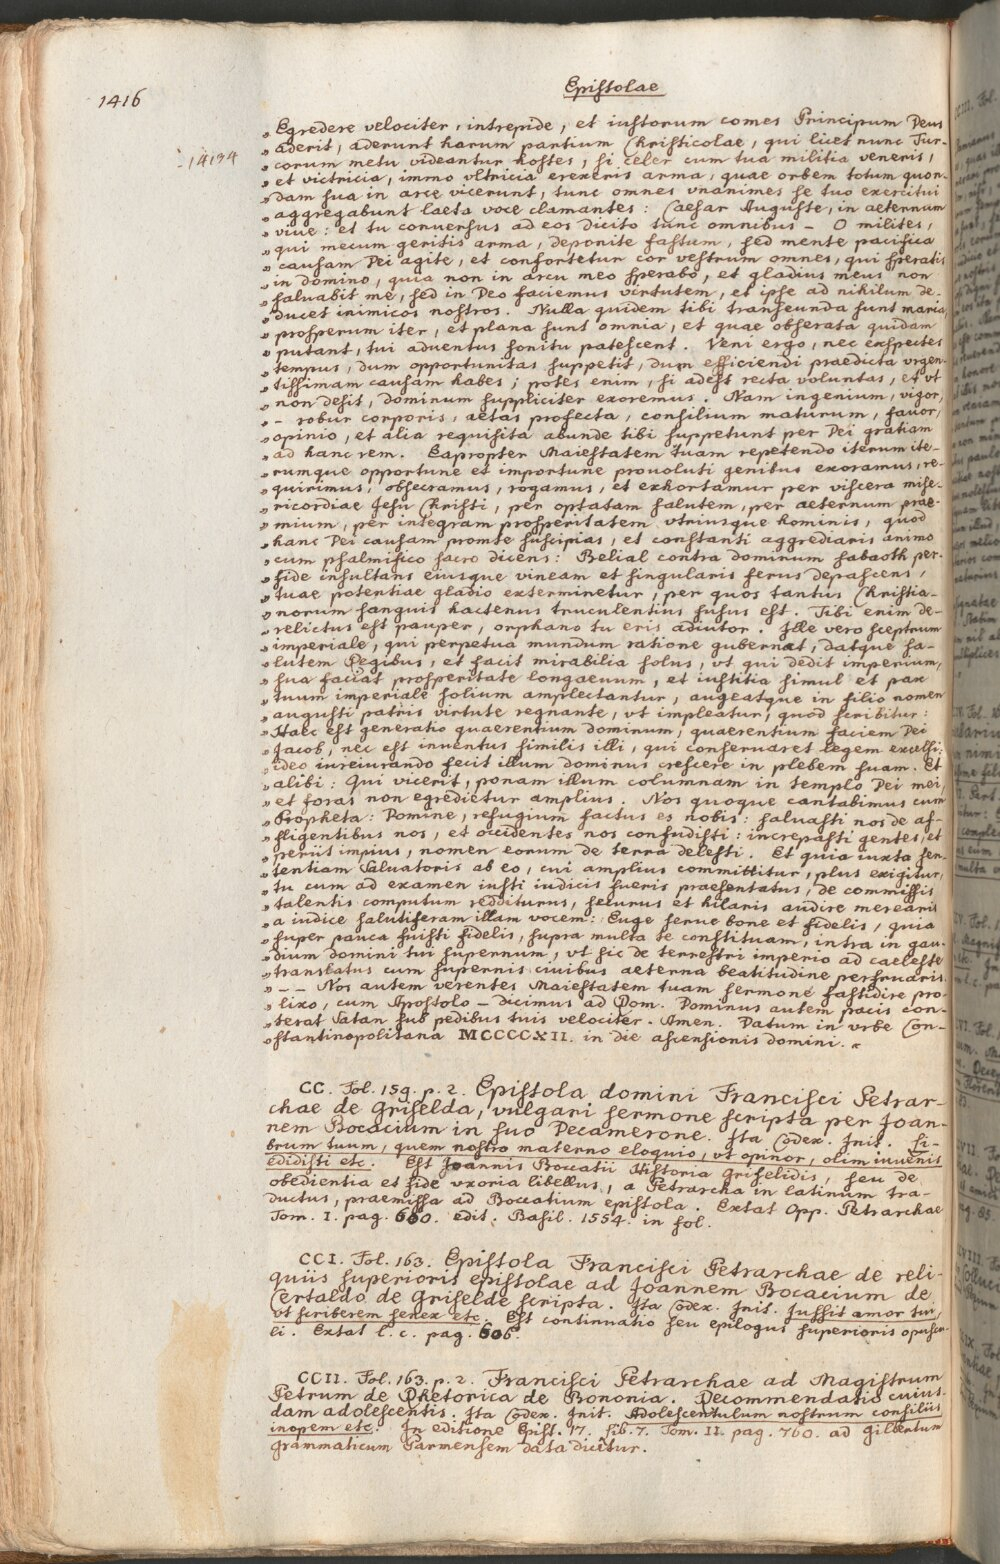 1416
Epistolae
„ Egredere velociter, intrepide, et iustorum comes Principum Deus
-14134
„ aderit, aderunt harum partium Christicolae, qui licet nunc Tur-
„ corum metu videantur hostes, si celer cum tua militia veneris,
„ et victricia, immo vltricia erexeris arma, quae orbem totum quon-
„ dam sua in arce vicerunt, tunc omnes vnanimes se tuo exercitui
„ aggregabunt laeta voce clamantes: Caesar Auguste, in aeternum
„ viue: et tu conuersus ad eos dicito tunc omnibus - O milites,
„ qui mecum geritis arma, deponite fastum, sed mente pacifica
„ causam Dei agite, et confortetur cor vestrum omnes, qui speratis
„ in domino, quia non in arcu meo sperabo, et gladius meus non
„ saluabit me, sed in Deo faciemus virtutem, et ipse ad nihilum de-
„ ducet inimicos nostros. Nulla quidem tibi transeunda sunt maria,
„ prosperum iter, et plana sunt omnia, et quae obserata quidam
„ putant, tui aduentus sonitu patescent. Veni ergo, nec exspectes
„ tempus, dum opportunitas suppetit, dum efficiendi praedicta vrgen-
„ tissimam causam habes; potes enim, si adest recta voluntas, et vt
„ non desit, dominum suppliciter exoremus. Nam ingenium, vigor,
„ - robur corporis, aetas profecta, consilium maturum, fauor,
„ opinio, et alia requisita abunde tibi suppetunt per Dei gratiam
„ ad hanc rem. Eapropter Maiestatem tuam repetendo iterum ite-
„ rumque opportune et importune prouoluti genibus exoramus, re-
„ quirimus, obsecramus, rogamus, et exhortamur per viscera mise-
„ ricordiae Jesu Christi, per optatam salutem, per aeternum prae-
„ mium, per integram prosperitatem vtriusque hominis, quod
„ hanc Dei causam promte suscipias, et constanti aggrediaris animo
„ cum psalmifico sacro dicens: Belial contra dominum sabaoth per-
„ fide insultans eiusque vineam et singularis ferus depascens,
„ tuae potentiae gladio exterminetur, per quos tantus Christia-
„ norum sanguis hactenus truculentius fusus est. Tibi enim de-
„ relictus est pauper, orphano tu eris adiutor. Ille vero sceptrum
„ imperiale, qui perpetua mundum ratione gubernat, datque sa-
„ lutem Regibus, et facit mirabilia solus, vt qui dedit imperium,
„ sua faciat prosperitate longaeuum, et iustitia simul et pax
„ tuum imperiale solium amplectantur, augeatque in filio nomen
„ augusti patris virtute regnante, vt impleatur, quod scribitur:
„ Haec est generatio quaerentium dominum, quaerentium faciem Dei
„ Jacob, nec est inuentus similis illi, qui conseruaret legem excelsi:
„ ideo iureiurando fecit illum dominus crescere in plebem suam. Et
„ alibi: Qui vicerit, ponam illum columnam in templo Dei mei,
„ et foras non egredietur amplius. Nos quoque cantabimus cum
„ Propheta: Domine, refugium factus es nobis: saluasti nos de af-
„ fligentibus nos, et occidentes nos confudisti: increpasti gentes, et
„ periit impius, nomen eorum de terra delesti. Et quia iuxta sen-
„ tentiam Saluatoris ab eo, cui amplius committitur, plus exigitur,
„ tu cum ad examen iusti iudicis fueris praesentatus, de commissis
„ talentis computum redditurus, securus et hilaris audire merearis
„ a iudice salutiferam illam vocem: Euge serue bone et fidelis, quia
„ super pauca fuisti fidelis, supra multa te constituam, intra in gau-
„ dium domini tui supernum, vt sic de terrestri imperio ad caeleste
„ translatus cum supernis ciuibus aeterna beatitudine perfruaris.
„ - - Nos autem verentes Maiestatem tuam sermone fastidire pro-
„ lixo, cum Apostolo - dicimus ad Rom. Dominus autem pacis con-
„ terat Satan sub pedibus tuis velociter. Amen. Datum in vrbe Con-
„ stantinopolitana MCCCCXII. in die ascensionis domini. “
CC. Fol. 159. p. 2. Epistola domini Francisci Petrar-
chae de Griselda, vulgari sermone scripta per Joan-
nem Bocacium in suo Decamerone. Ita Codex. Init. Li-
brum tuum, quem nostro materno eloquio, vt opinor, olim iuuenis
edidisti etc. Est Joannis Boccatii Historia Griselidis, seu de
obedientia et fide vxoria libellus, a Petrarcha in latinum tra-
ductus, praemissa ad Boccatium epistola. Extat Opp. Petrarchae
Tom. I. pag. 600. edit. Basil. 1554. in fol.
CCI. Fol. 163. Epistola Francisci Petrarchae de reli-
quiis superioris epistolae ad Joannem Bocacium de
Certaldo de Griselde scripta. Ita Codex. Init. Jussit amor tui,
vt scriberem senex etc. Est continuatio seu epilogus superioris opuscu-
li. Extat l. c. pag. 606.
CCII. Fol. 163. p. 2. Francisci Petrarchae ad Magistrum
Petrum de Rhetorica de Bononia. Recommendatio cuius-
dam adolescentis. Ita Codex. Init. Adolescentulum nostrum consilii
inopem etc. In editione Epist. 17. Lib. 7. Tom. II. pag. 760. ad Gilbertum
Grammaticum Parmensem data dicitur.